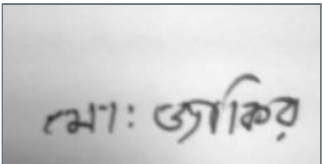 মো: জাকির